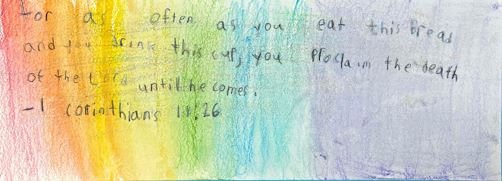 For as often as you eat this bread
and you drink this cup, you proclaim the death
of the Lord until he comes.
-1 Corinthians 11:26